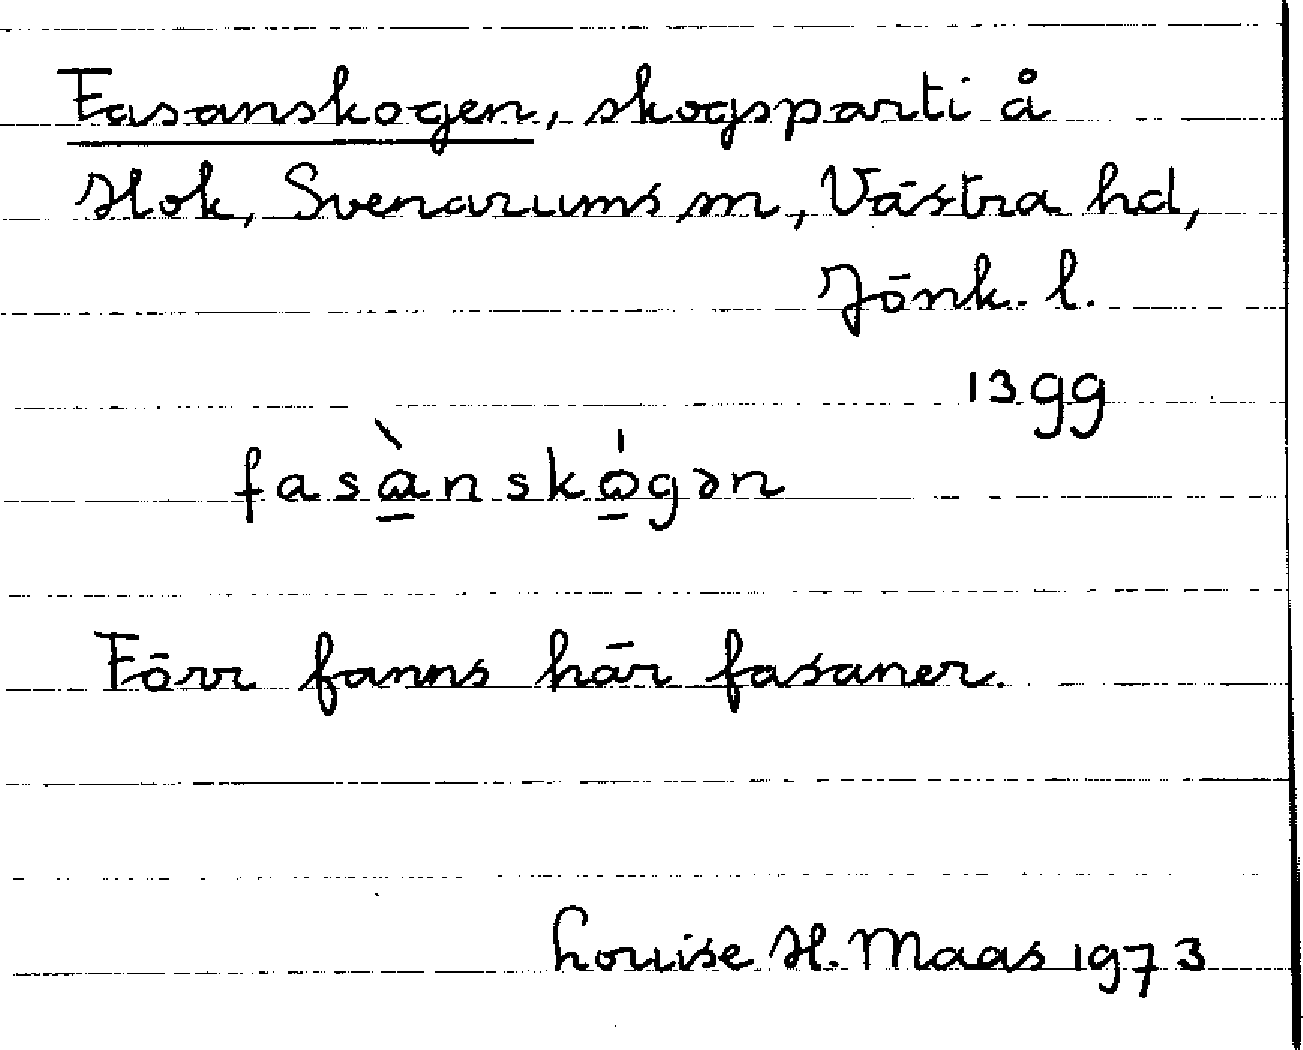 Fasanskogen, skogsparti å
Hok, Svenarums sn, Västra hd,
Jönk. l.
13 gg
fasà̱nskó̱gən
Förr fanns här fasaner.
Louise H. Maas 1973